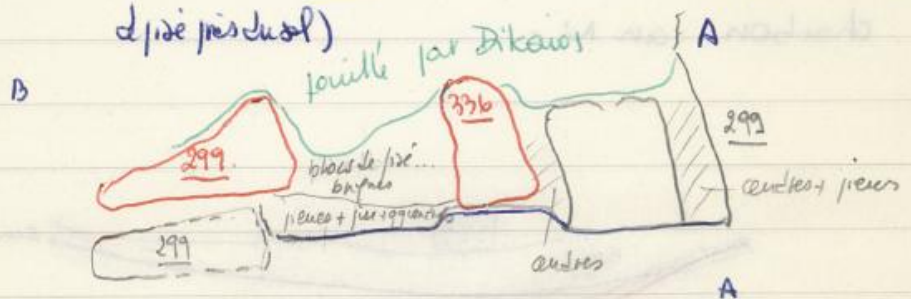 pisé près du sol)
A
fouillé par Dikaios
B
336
299
299
blocs de pisé...
briques
cendres + pierres
pierres + pisé +
299
cendres
A